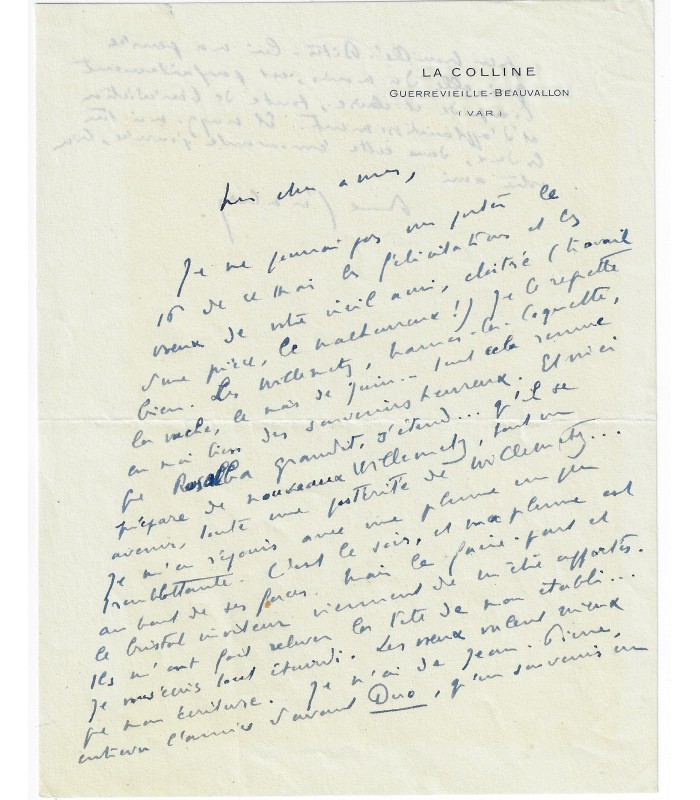 LA COLLINE
GUERREVIEILLE-BEAUVALLON
(VAR)
Mes chers amis,
Je ne pourrai pas vous porter le
16 de ce mai les félicitations et les
voeux de votre vieil ami, cloîtré (travail
d'une pièce, le malheureux !) Je le regrette
bien. Les Willemetz, Marnes-la-Coquette,
la vache, le mois de juin... tout cela remue
en moi tous des souvenirs heureux. Et voici
que Rosalba grandit, s'étend... qu'il se
prépare de nouveaux Willemetz, tout un
avenir, toute une postérité de Willemetz...
Je m'en réjouis avec une plume un peu
tremblottante. C'est le soir, et ma plume est
au bout de ses forces. Mais le faire-part et
le bristol inviteur viennent de m'être apportés.
Ils m'ont fait relever la tête de mon établi...
Je vous écris tout étourdi. Les voeux valent mieux
que mon écriture. Je n'ai de Jean-Pierre,
entrevu l'année d'avant Duo, qu'un souvenir un